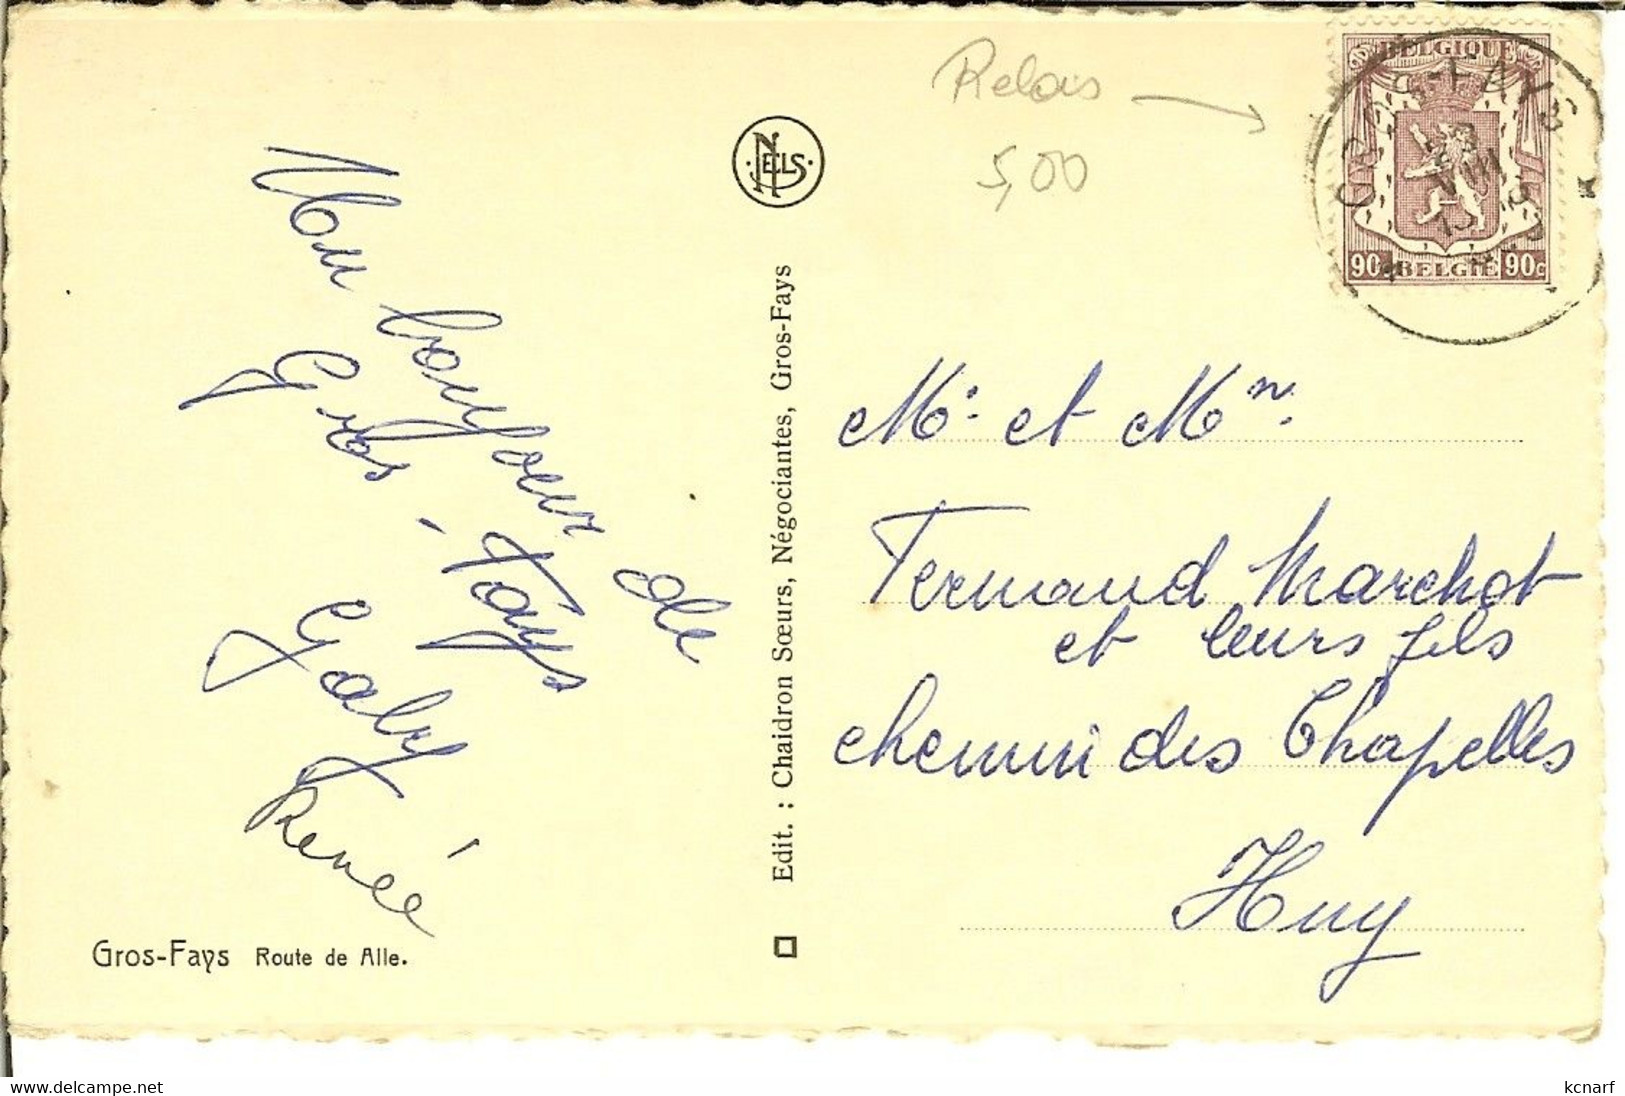 Un bonjour de
Gros-Fays
Gaby
Renée
Gros-Fays Route de Alle.
NELS
Edit. : Chaidron Sœurs, Négociantes, Gros-Fays
Relais
5,00
BELGIQUE
90c BELGIE 90c
GROS-FAYS
VIII
Mr. et Mm.
Fernand Marchot
et leurs fils
chemin des Chapelles
Huy
www.delcampe.net
kcnarf